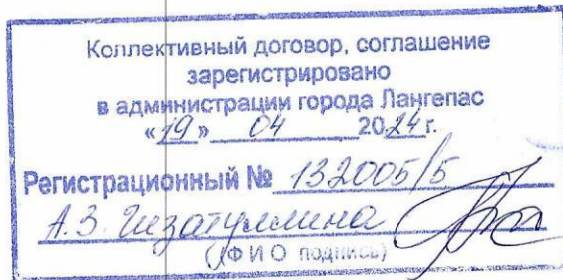 Коллективный договор, соглашение
зарегистрировано
в администрации города Лангепас
«19» 04 2024 г.
Регистрационный № 132005/5
А.З. Гизатуллина
(Ф И О подпись)